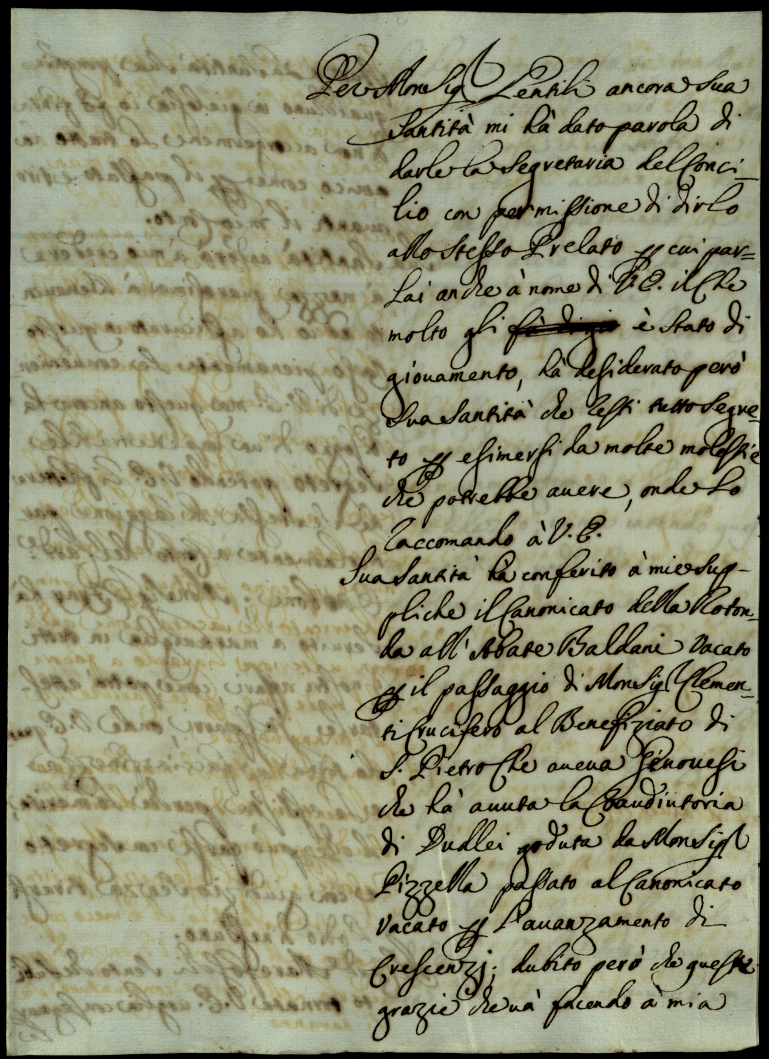 Per Monsig.r Lentili ancora Sua
Santità mi hà dato parola di
darle la Segretaria del Conci-
lio con permissione di dirlo
allo stesso Prelato p cui par=
lai anche à nome di V.E. il che
molto gli è stato di
giovamento, hà desiderato però
Sua Santità che resti tutto segre=
to p esimersi da molte molestie
che potrebbe avere, onde lo
raccomando à V.E.
Sua Santità hà conferito à mie sup-
pliche il Canonicato della Roton-
da all'Abate Baldani vacato
p il passaggio di Monsig.r Clemen-
ti Crucifero al Benefiziato di
S. Pietro che aveva Genovesi
che hà avuta la Coaudiutoria
di Dudlei goduta da Monsig.r
Pizzella passato al Canonicato
vacato p l'avanzamento di
Crescenzj; dubito però che queste
grazie che và facendo à mia